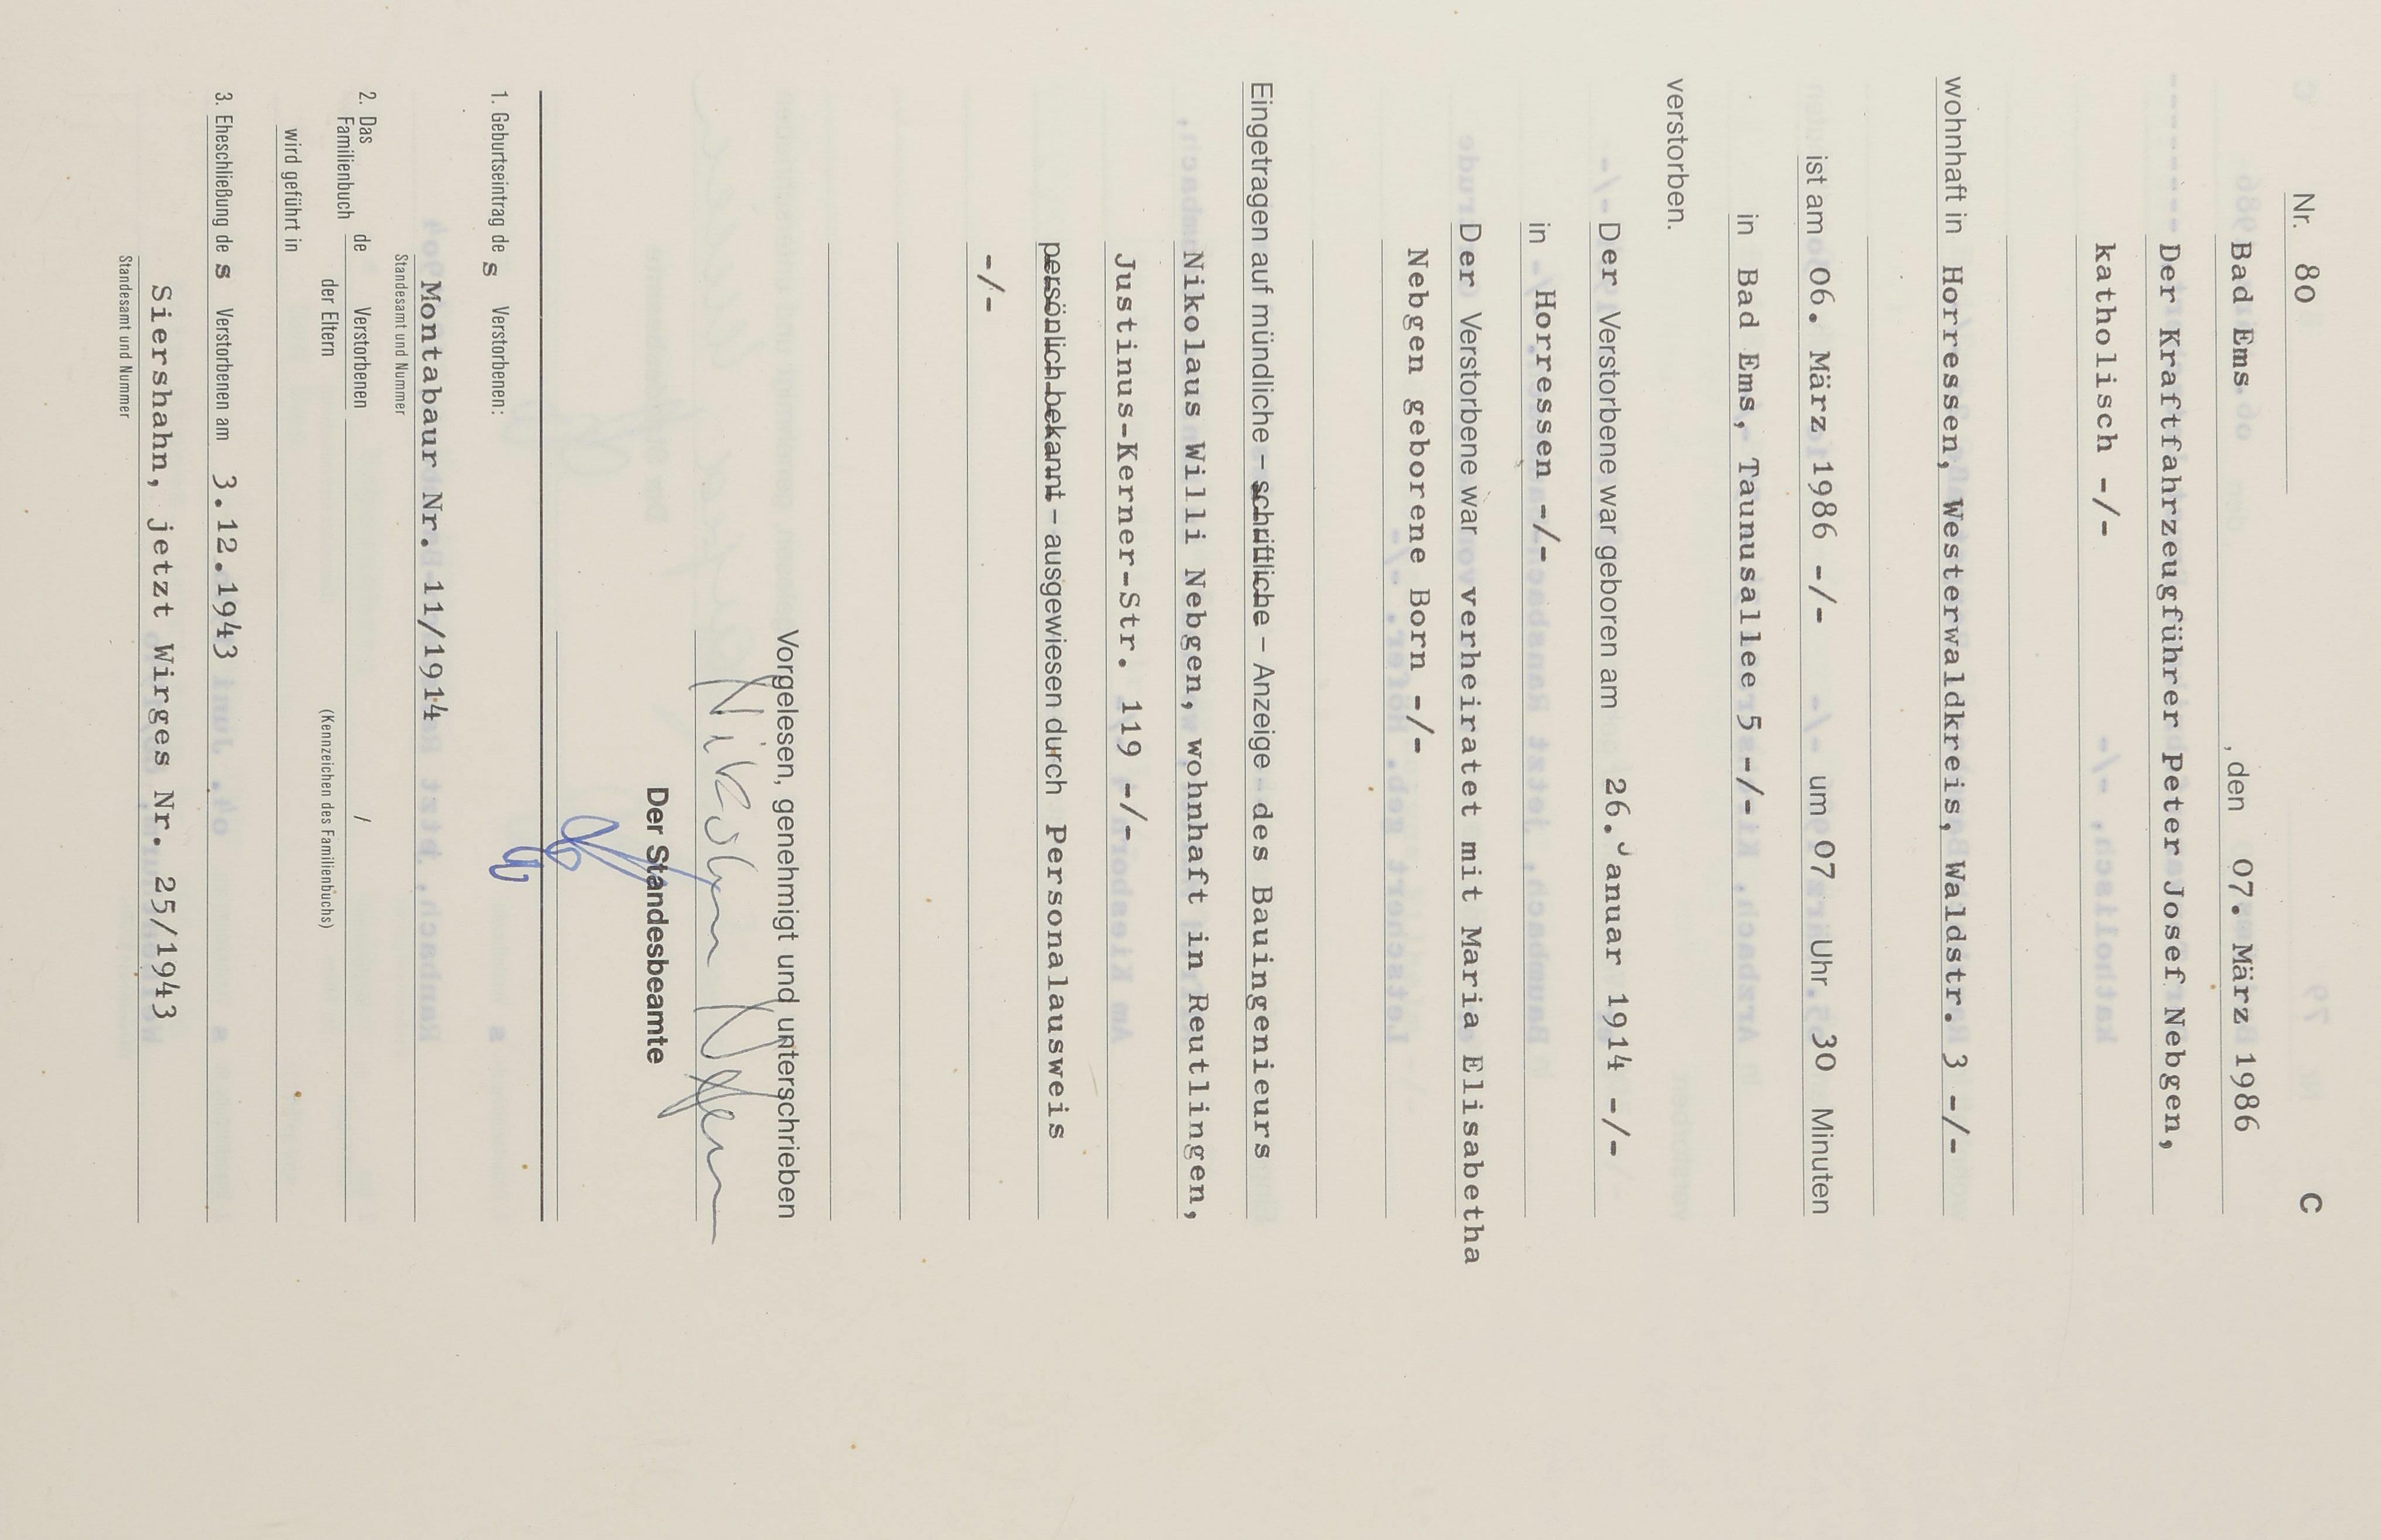 Nr. 80 C
Bad Ems, den 07. März 1986
Der Kraftfahrzeugführer Peter Josef Nebgen,
katholisch -/-
wohnhaft in Horressen, Westerwaldkreis, Waldstr. 3 -/-
ist am 06. März 1986 -/- um 07 Uhr 30 Minuten
in Bad Ems, Taunusallee 5 -/-
verstorben.
Der Verstorbene war geboren am 26. Januar 1914 -/-
in Horressen -/-
Der Verstorbene war verheiratet mit Maria Elisabetha
Nebgen geborene Born -/-
Eingetragen auf mündliche – schriftliche – Anzeige des Bauingenieurs
Nikolaus Willi Nebgen, wohnhaft in Reutlingen,
Justinus-Kerner-Str. 119 -/-
persönlich bekannt – ausgewiesen durch Personalausweis
-/-
Vorgelesen, genehmigt und unterschrieben
Nikolaus Nebgen
Der Standesbeamte
1. Geburtseintrag des Verstorbenen:
Montabaur Nr. 11/1914
Standesamt und Nummer
2. Das Familienbuch de Verstorbenen /
der Eltern (Kennzeichen des Familienbuchs)
wird geführt in
3. Eheschließung des Verstorbenen am 3.12.1943
Siershahn, jetzt Wirges Nr. 25/1943
Standesamt und Nummer